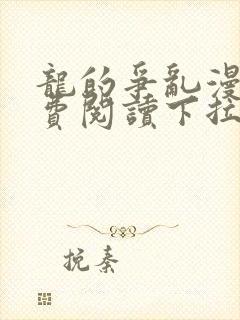 龍的爭亂漫
費閱讀下拉
挽秦